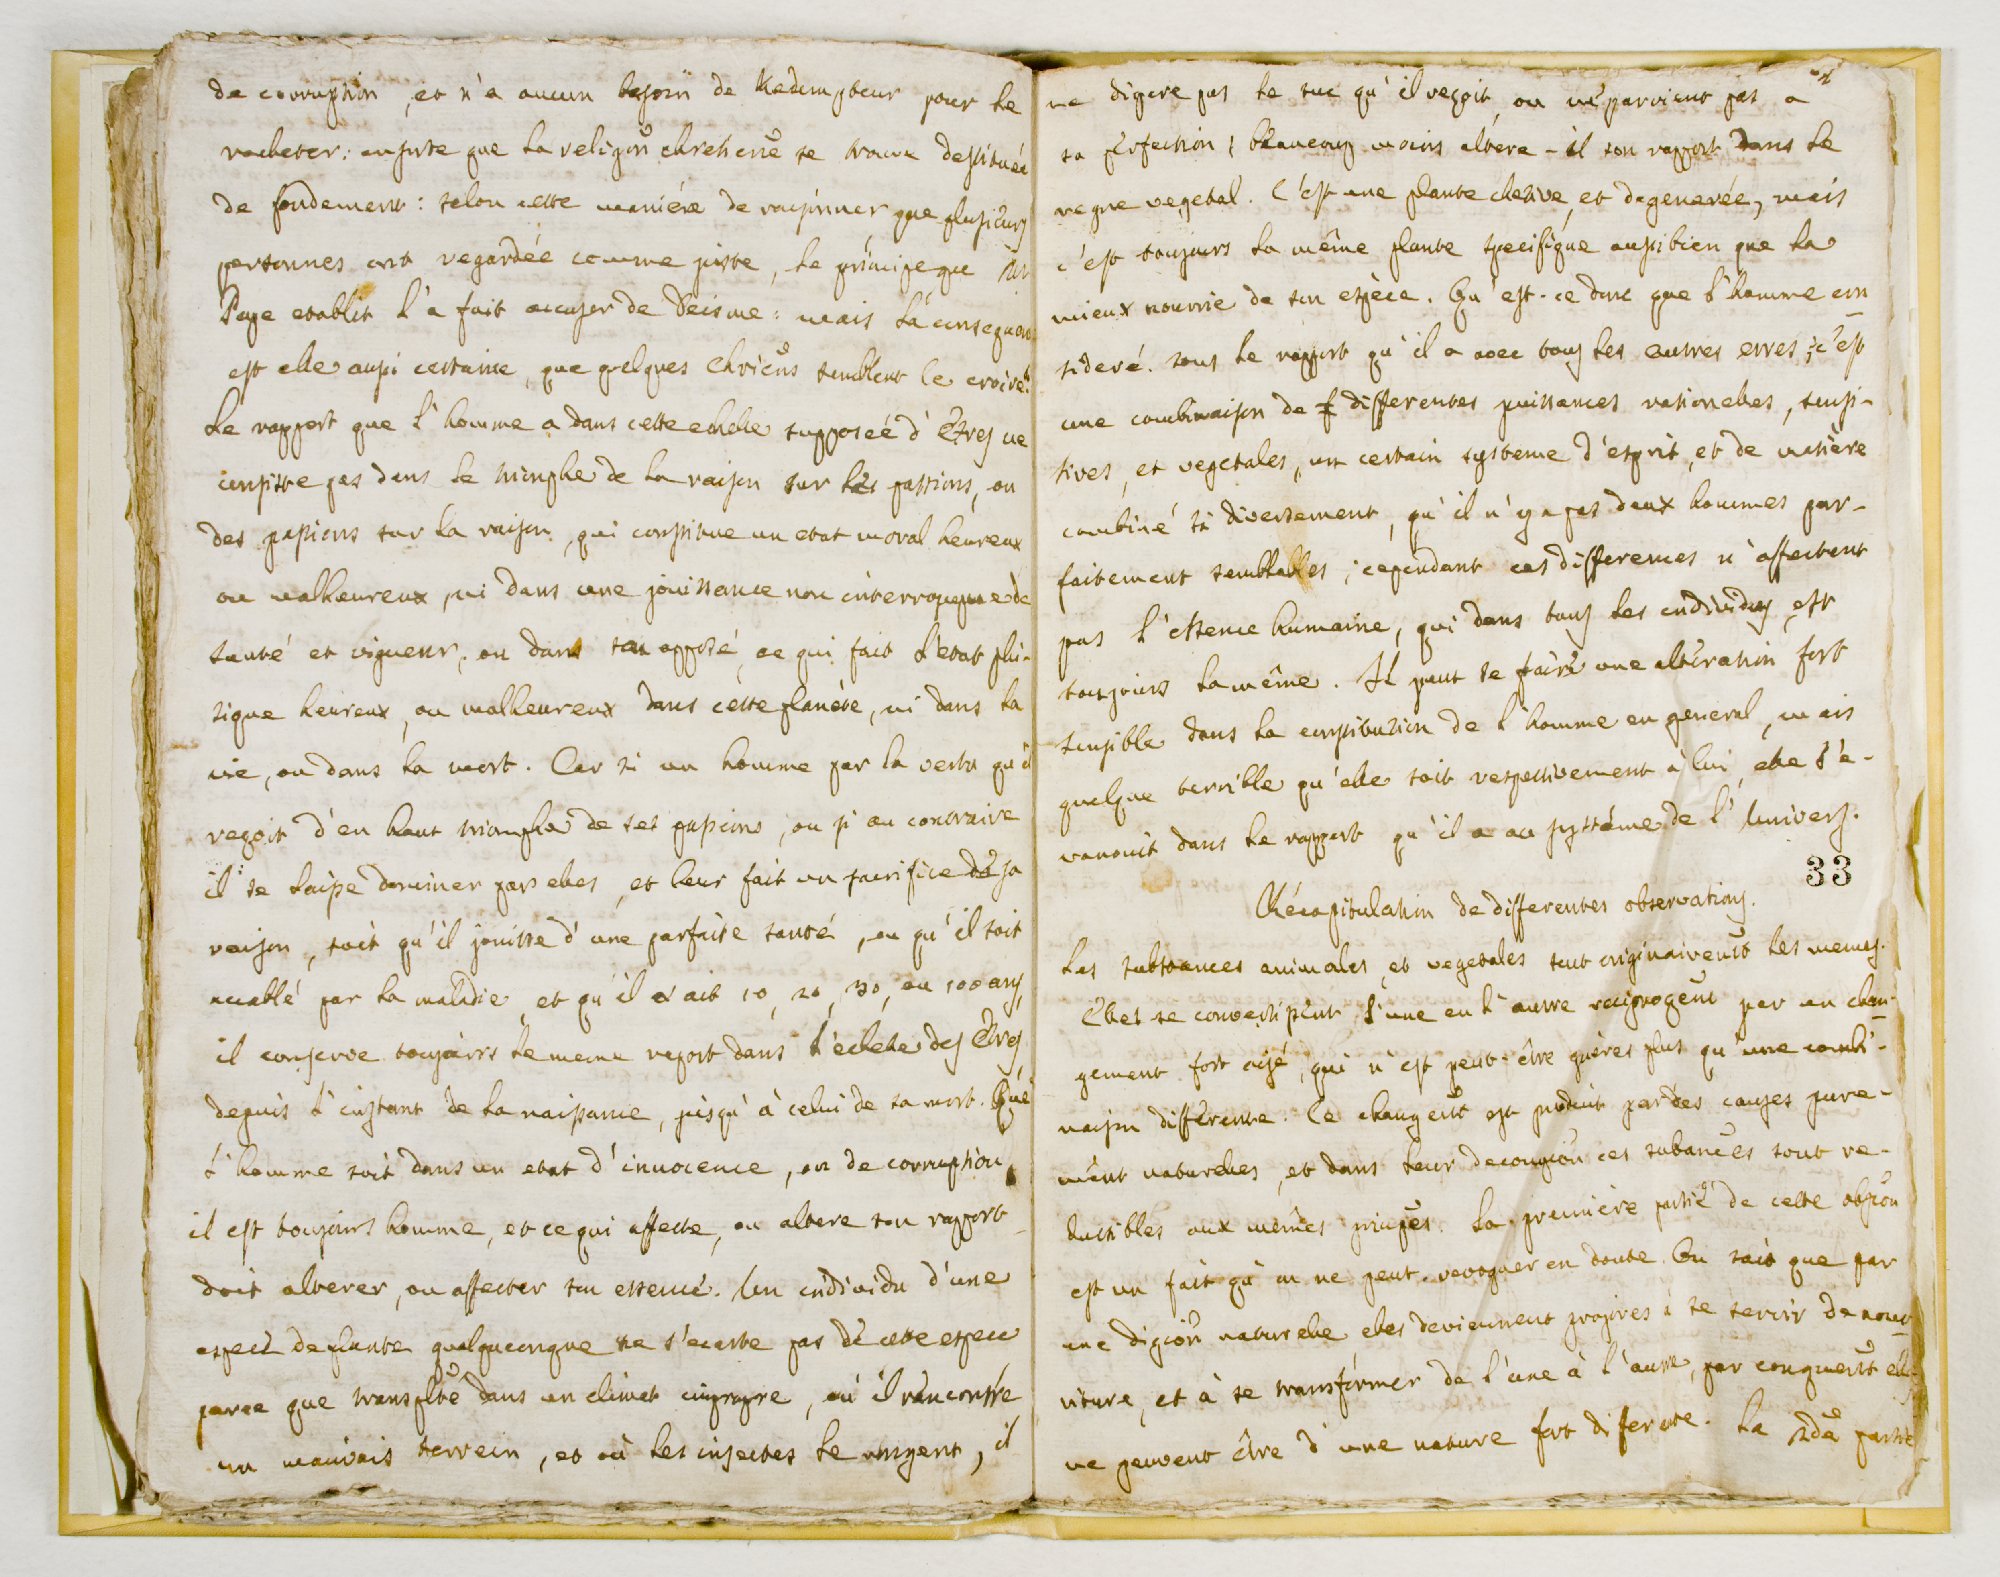 de corruption, et n'a aucun besoin de Redempteur pour le
racheter: ensorte que la religion chretiene se trouve destituée
de fondement: selon cette maniére de raisonner, que plusieurs
personnes ont regardée comme juste, le principe que Mr
Pope etablit l'a fait accuser de Deisme: mais la consequence
est elle aussi certaine, que quelques Chrêtiens semblent le croire?
Le rapport que l'homme a dans cette echelle supposée d'Etres ne
consiste pas dans le triomphe de la raison sur les passions, ou
des passions sur la raison, qui constitue un etat moral heureux
ou malheureux, ni dans une jouissance non interrompue de
santé et vigueur, ou dans son opposé, ce qui fait l'etat phi-
sique heureux, ou malheureux dans cette planète, ni dans la
vie, ou dans la mort. Car si un homme par la vertu qu'il
reçoit d'en haut triomphe de ses passions, ou si au contraire
il se laisse dominer par elles, et leur fait un sacrifice de sa
raison, soit qu'il jouisse d'une parfaite santé, ou qu'il soit
accablé par la maladie, et qu'il ait 10, 20, 30, ou 100 ans,
il conserve toujours le meme raport dans l'echele des Etres,
depuis l'instant de la naissance, jusqu'à celui de sa mort. Que
l'homme soit dans un etat d'innocence, ou de corruption,
il est toujours homme, et ce qui affecte, ou altere son rapport
doit alterer, ou affecter son essence. Un individu d'une
espece de plante quelquonque ne s'ecarte pas de cette espece
parce que transplté dans un climat impropre, où il rencontre
un mauvais terrein, et où les insectes le rongent, il
ne digere pas le suc qu'il reçoit, ou ne parvient pas a
sa perfection; beaucoup moins altere-il son rapport dans le
regne vegetal. C'est une plante chetive, et degenerée, mais
c'est toujours la même plante specifique aussibien que la
mieux nourrie de son espèce. Qu'est-ce donc que l'homme con
sideré sous le rapport qu'il a avec tous les autres etres; c'est
une combinaison de differentes puissances rationelles, sensi-
tives, et vegetales, un certain systeme d'esprit, et de matière
combiné si diversement, qu'il n'y a pas deux hommes par-
faitement semblables; cependant ces differences n'affectent
pas l'essence humaine, qui dans tous les individus est
toujours la même. Il peut se faire une altération fort
sensible dans la constitution de l'homme en general, mais
quelque terrible qu'elle soit respectivement à lui, elle s'e-
vanouit dans le rapport qu'il a au systéme de l'Univers.
33
Récapitulation de differentes observations.
Les substances animales, et vegetales sont originairent les memes.
Elles se convertissent l'une en l'autre reciproqent par un chan-
gement fort aisé, qui n'est peut-être guères plus qu'une combi-
naison différente. Ce changent est produit par des causes pure-
ment naturelles, et dans leur decompion ces subances sont re-
ductibles aux mêmes prinpes. La première partie de cette obsion
est un fait qu'on ne peut revoquer en doute. On sait que par
une digion naturelle elles deviennent propres à se servir de nour-
riture, et à se transformer de l'une à l'autre, par conquent elles
ne peuvent être d'une nature fort diferente. La 2de partie